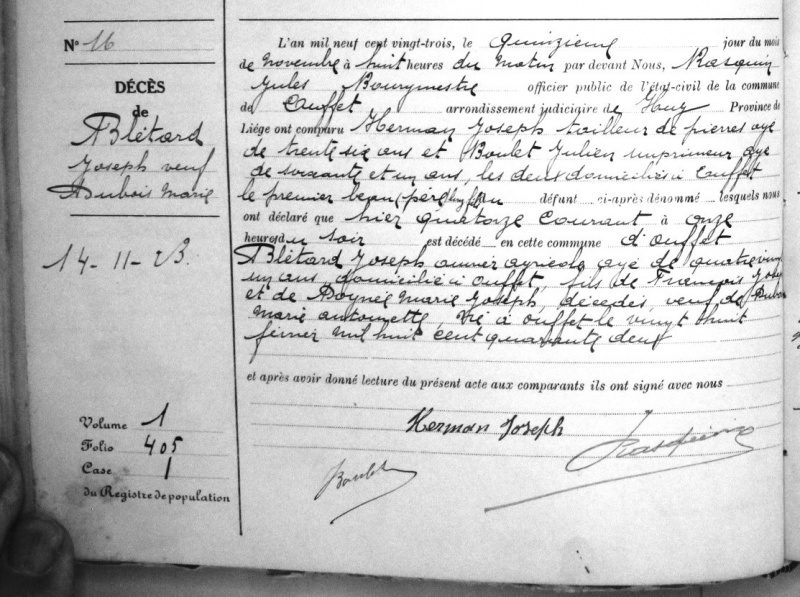 N° 16
DÉCÈS
de
Blétard
Joseph veuf
Dubois Marie
14-11-23.
Volume 1
Folio 405
Case 1
du Registre de population
L'an mil neuf cent vingt-trois, le quinzième jour du mois
de novembre à huit heures du matin par devant Nous, Rasquin
Jules Bourgmestre officier public de l'état-civil de la commune
de Ouffet arrondissement judiciaire de Huy Province de
Liége ont comparu Herman Joseph tailleur de pierres agé
de trente six ans et Boulet Julien imprimeur agé
de soixante et un ans, les deux domiciliés à Ouffet
le premier beau père du défunt ci-après dénommé lesquels nous
ont déclaré que hier quatorze courant à onze
heures du soir est décédé en cette commune d'ouffet
Blétard Joseph ouvrier agricole agé de quatre vingt
un ans domicilié à ouffet, fils de François Joseph
et de Marie Joseph, décédés veuf de Dubois
Marie antoinette, né à ouffet le vingt huit
février mil huit cent quarante deux
et après avoir donné lecture du présent acte aux comparants ils ont signé avec nous
Herman Joseph
Boulet
Rasquin